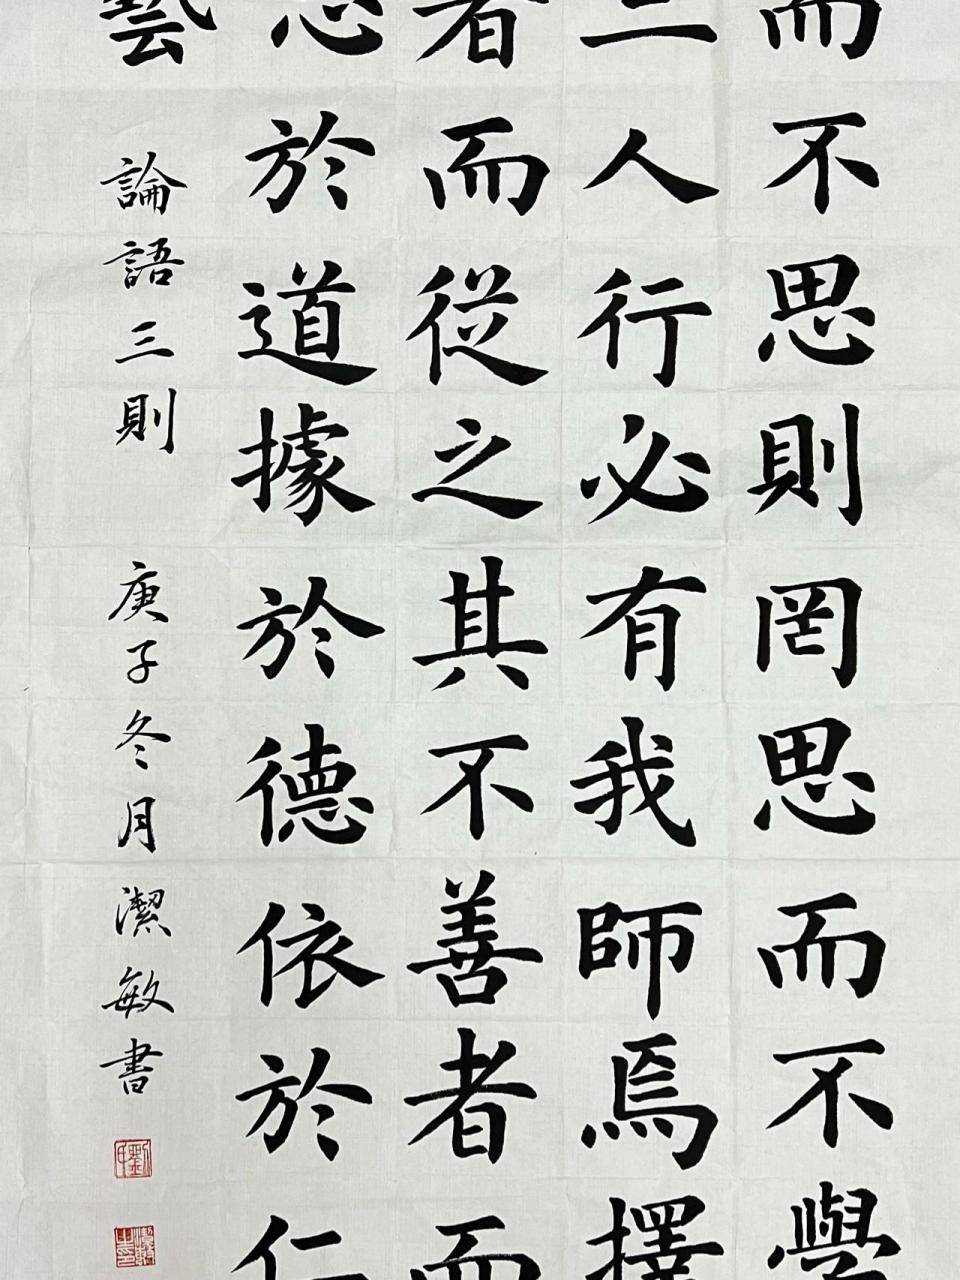 而不思則罔思而不學
三人行必有我師焉擇
者而從之其不善者而
志於道據於德依於仁
藝
論語三則 庚子冬月潔敏書